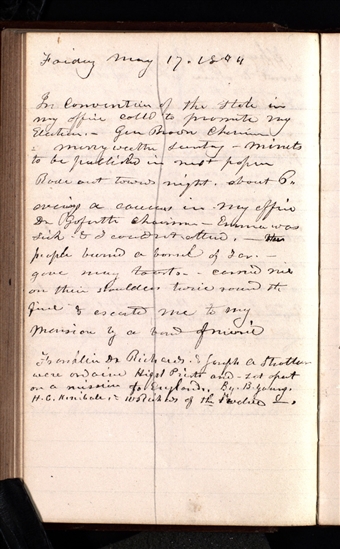 Friday May 17. 1844
In Convention of the State in
my office calld to promote my
Election. - Gen
- minuts
to be published in next paper
Rode out towards night. about 6 -
evening a caucus in my office
Dr Goforth chairman - Emma was
sick. & I could not attend. -
people burned a barrel of Tar. -
gave many toasts. - carried me
on their shoulders twice round the
fire & escorted me to my
Mansion by a band of music
Franklin D. Richards. & Joseph A Stratton
were ordained High Priests and set apart
on a mission to England. By. B. Young.
H. C. Kimball. & W. Richards of the Twelve